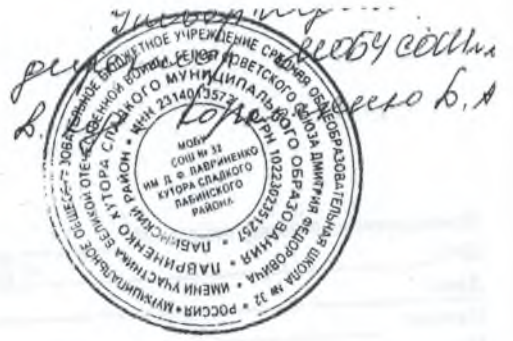 директор МОБУ СОШ
РОССИЯ • МУНИЦИПАЛЬНОЕ ОБЩЕОБРАЗОВАТЕЛЬНОЕ БЮДЖЕТНОЕ УЧРЕЖДЕНИЕ СРЕДНЯЯ ОБЩЕОБРАЗОВАТЕЛЬНАЯ ШКОЛА № 32
ИМЕНИ УЧАСТНИКА ВЕЛИКОЙ ОТЕЧЕСТВЕННОЙ ВОЙНЫ, ГЕРОЯ СОВЕТСКОГО СОЮЗА ДМИТРИЯ ФЕДОРОВИЧА
ЛАВРИНЕНКО ХУТОРА СЛАДКОГО МУНИЦИПАЛЬНОГО ОБРАЗОВАНИЯ
ЛАБИНСКИЙ РАЙОН • ИНН 2314013572 ОГРН 1022302351257
МОБУ
СОШ № 32
ИМ. Д. Ф. ЛАВРИНЕНКО
ХУТОРА СЛАДКОГО
ЛАБИНСКОГО
РАЙОНА